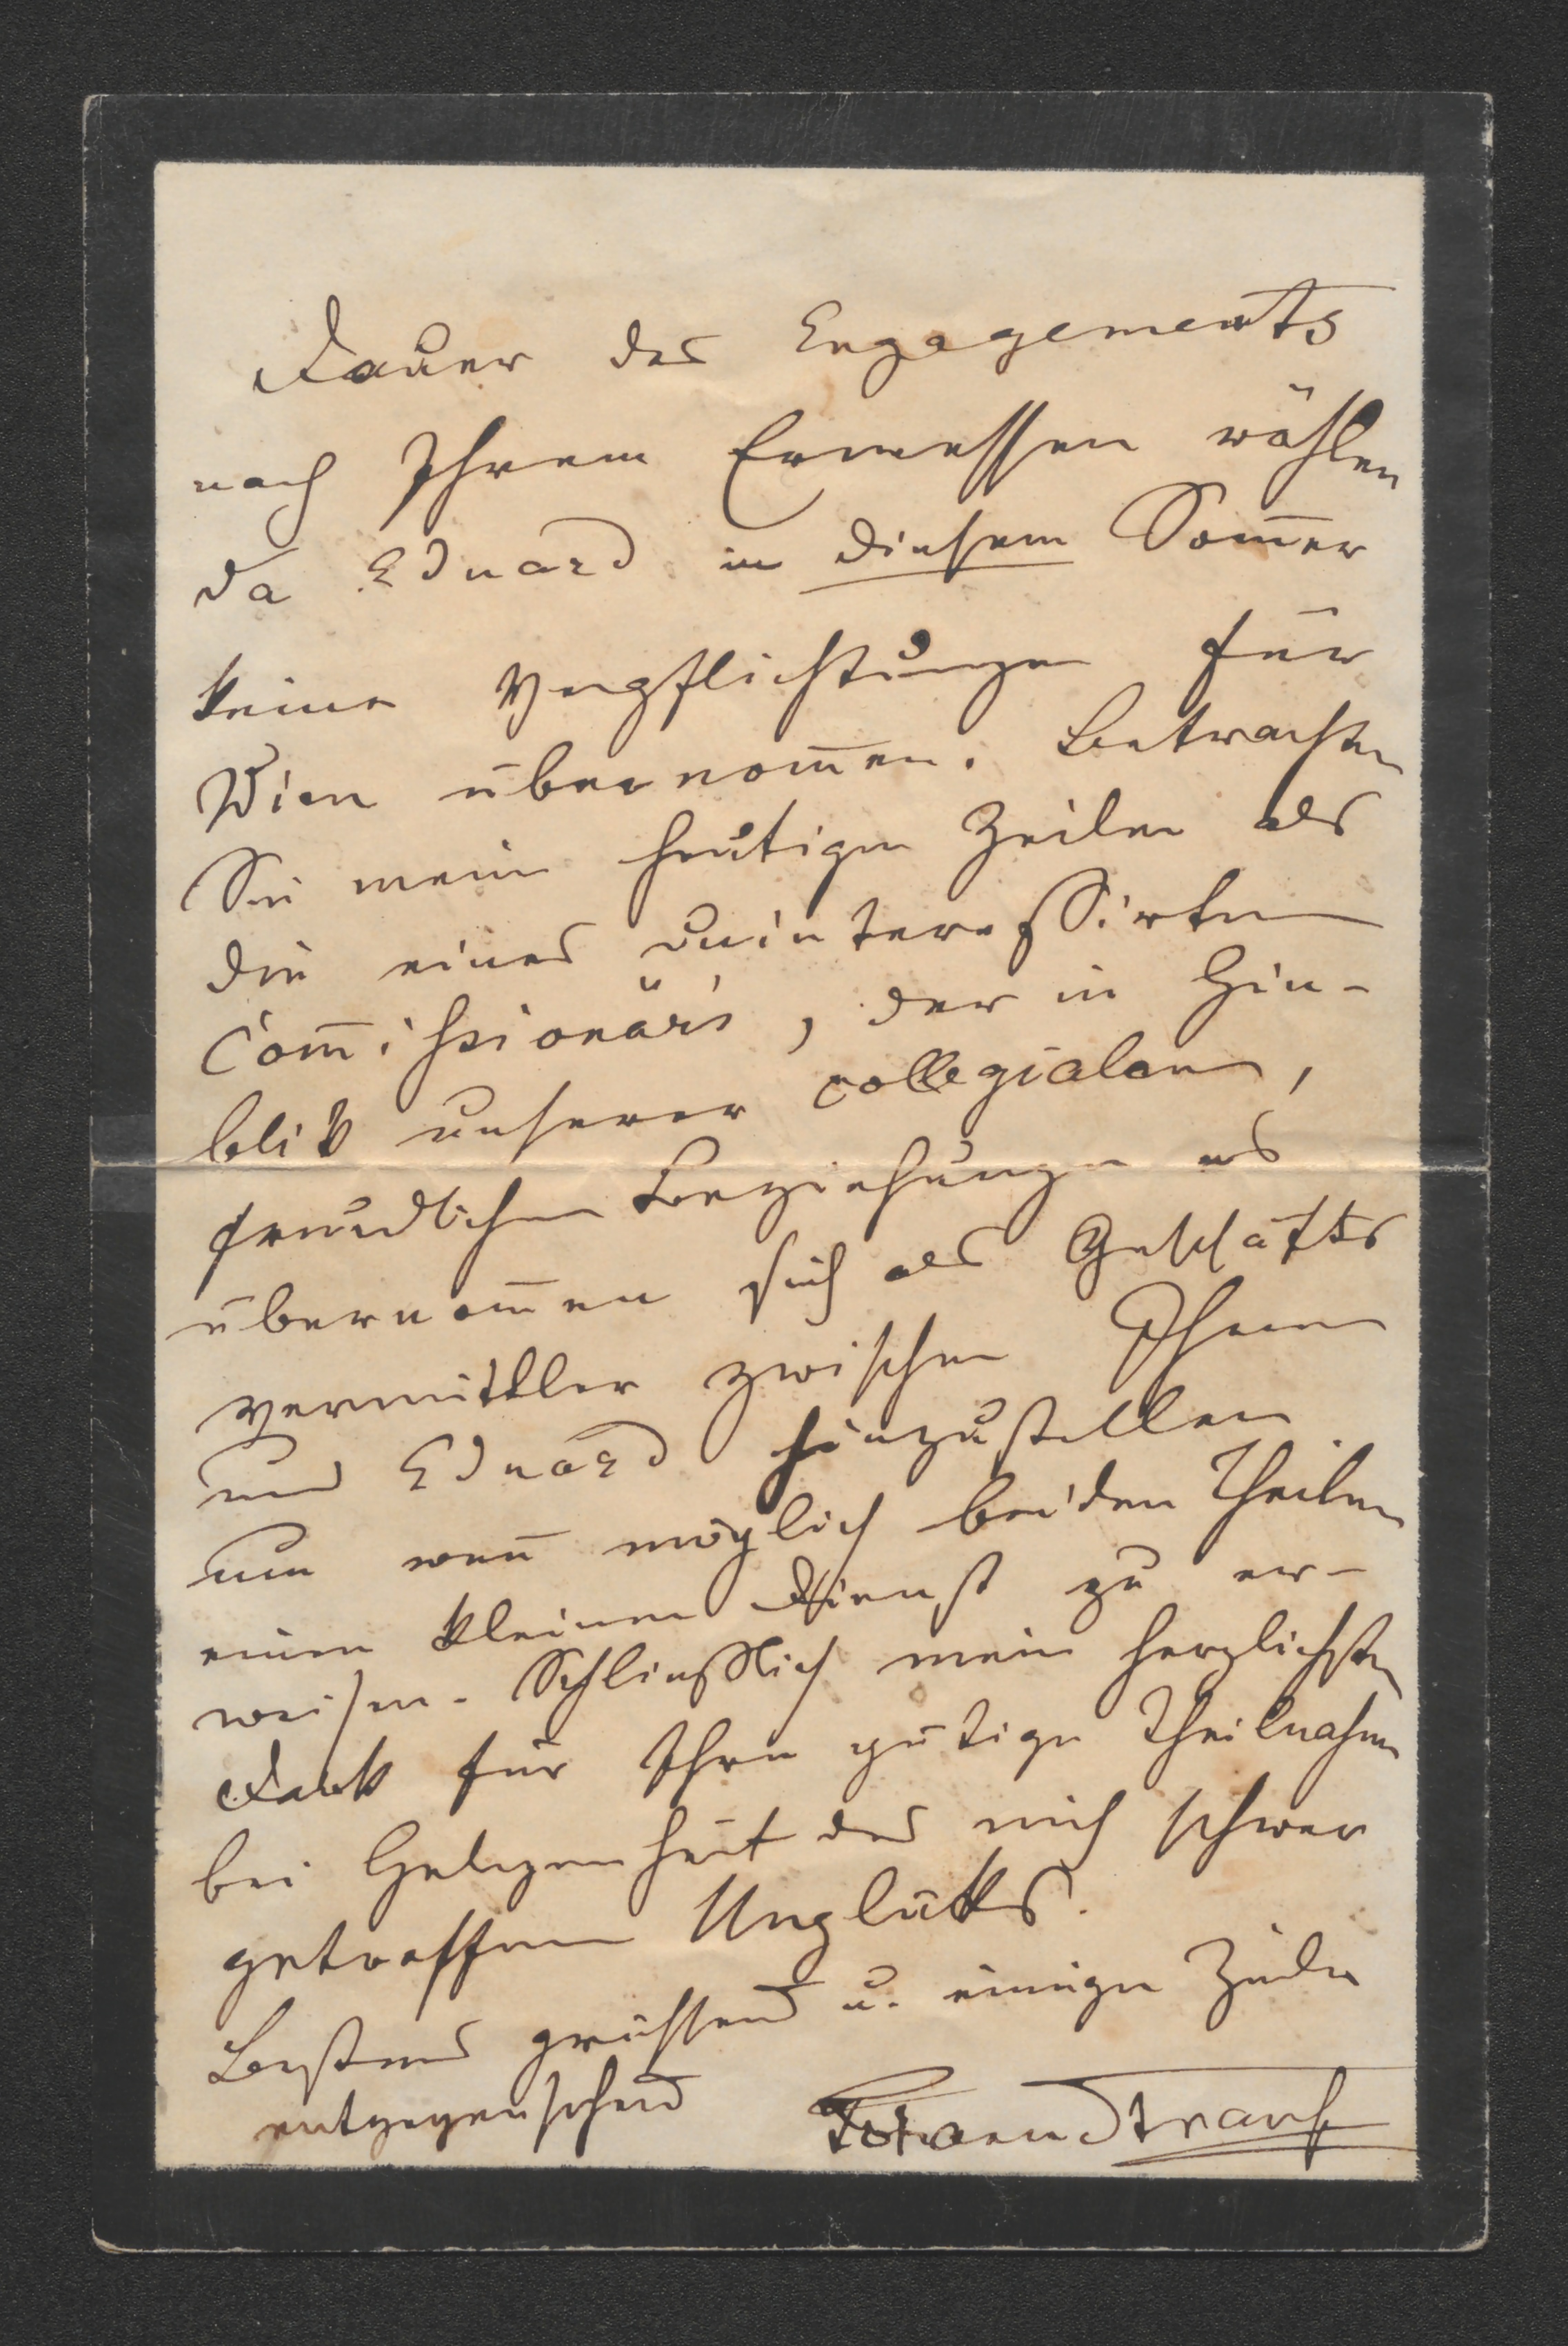 Dauer des Engagements
nach Ihrem Ermessen wählen
da Eduard in diesem Som̄er
keine Verpflichtungen für
Wien übernom̄en. Betrachten
Sie meine heutigen Zeilen als
die eines uninteressirten
Com̄issionärs, der in Hin-
blik unserer collegialen,
freundlichen Beziehungen es
übernom̄en sich als Geschäfts
vermittler zwischen Ihnen
und Eduard hinzustellen
um wen̄ möglich beiden Theilen
einen kleinen Dienst zu er-
weisen. Schliesslich mein herzlichsten
Dank für Ihre gütige Theilnahme
bei Gelegenheit des mich schwer
getroffenen Unglüks.
Bestens grüssend u. einigen Zeilen
entgegensehend Johann Strauss